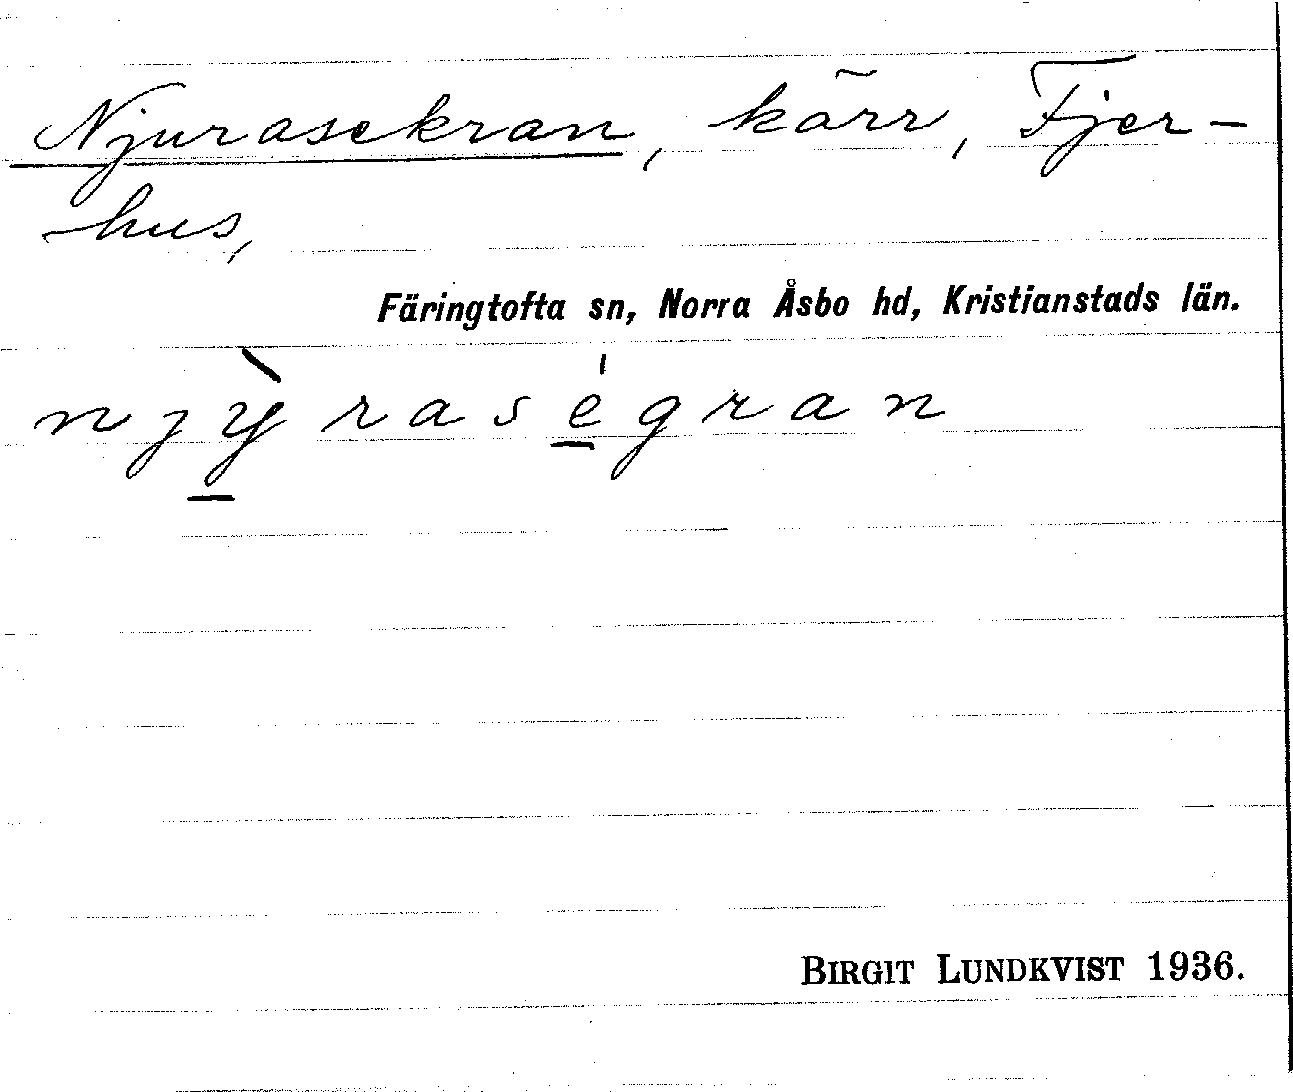 Njurasekran, kärr, Fjer-
hus,
Färingtofta sn, Norra Åsbo hd, Kristianstads län.
njỳ̲rasé̲gran
BIRGIT LUNDKVIST 1936.